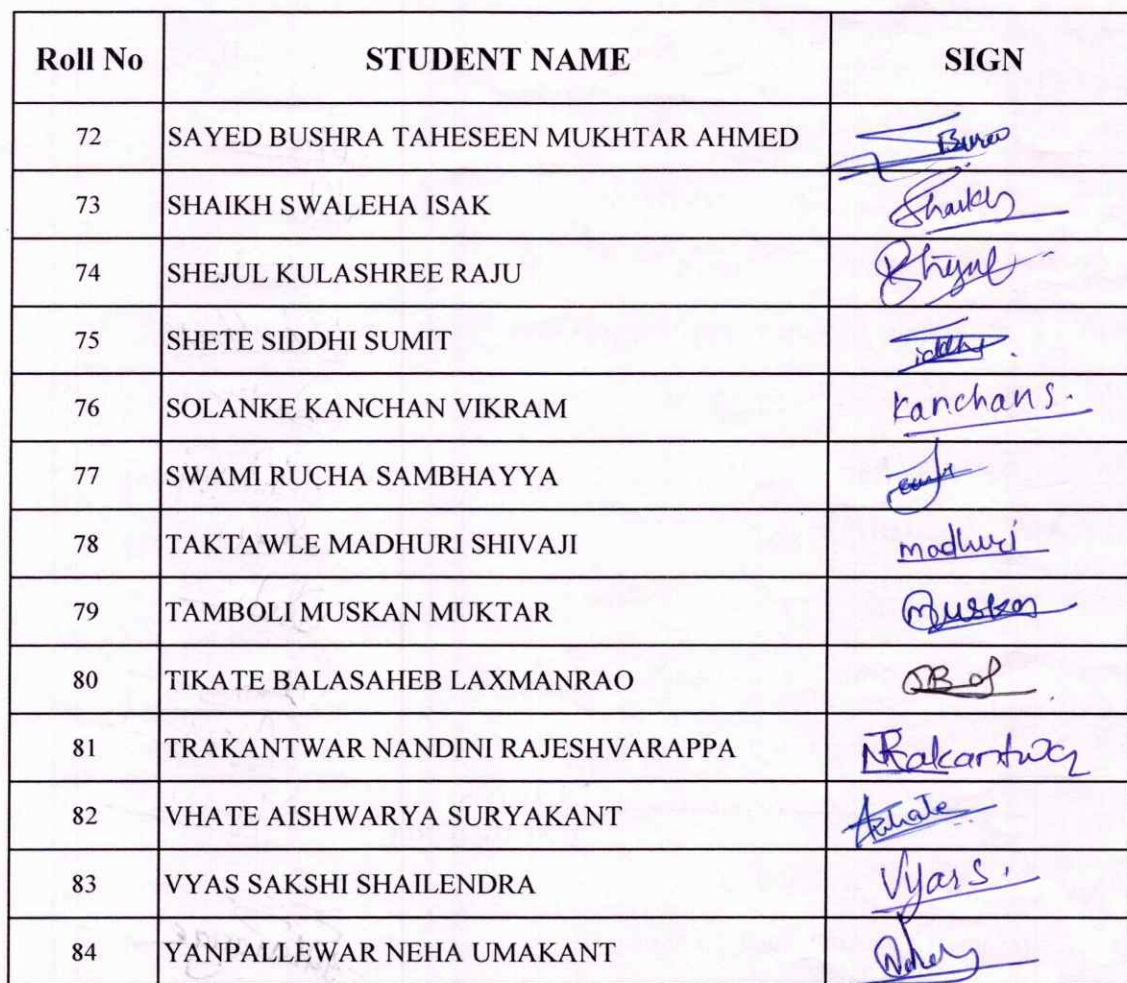 Roll No STUDENT NAME SIGN
72 SAYED BUSHRA TAHESEEN MUKHTAR AHMED
73 SHAIKH SWALEHA ISAK Shaikh
74 SHEJUL KULASHREE RAJU
75 SHETE SIDDHI SUMIT
76 SOLANKE KANCHAN VIKRAM Kanchan S.
77 SWAMI RUCHA SAMBHAYYA
78 TAKTAWLE MADHURI SHIVAJI madhuri
79 TAMBOLI MUSKAN MUKTAR Muskan
80 TIKATE BALASAHEB LAXMANRAO
81 TRAKANTWAR NANDINI RAJESHVARAPPA
82 VHATE AISHWARYA SURYAKANT
83 VYAS SAKSHI SHAILENDRA Vyas S.
84 YANPALLEWAR NEHA UMAKANT